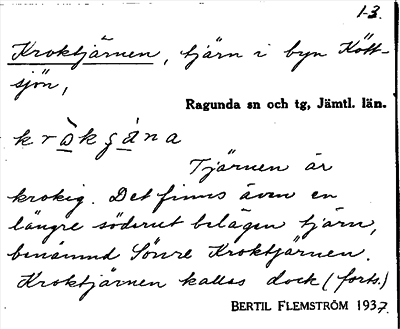 1-3.
Kroktjärnen, tjärn i byn Kött-
sjön,
Ragunda sn och tg, Jämtl. län.
Tjärnen är
krokig. Det finns även en
längre söderut belägen tjärn,
benämnd Sönre Kroktjärnen.
Kroktjärnen kallas dock (forts.)
BERTIL FLEMSTRÖM 1937.